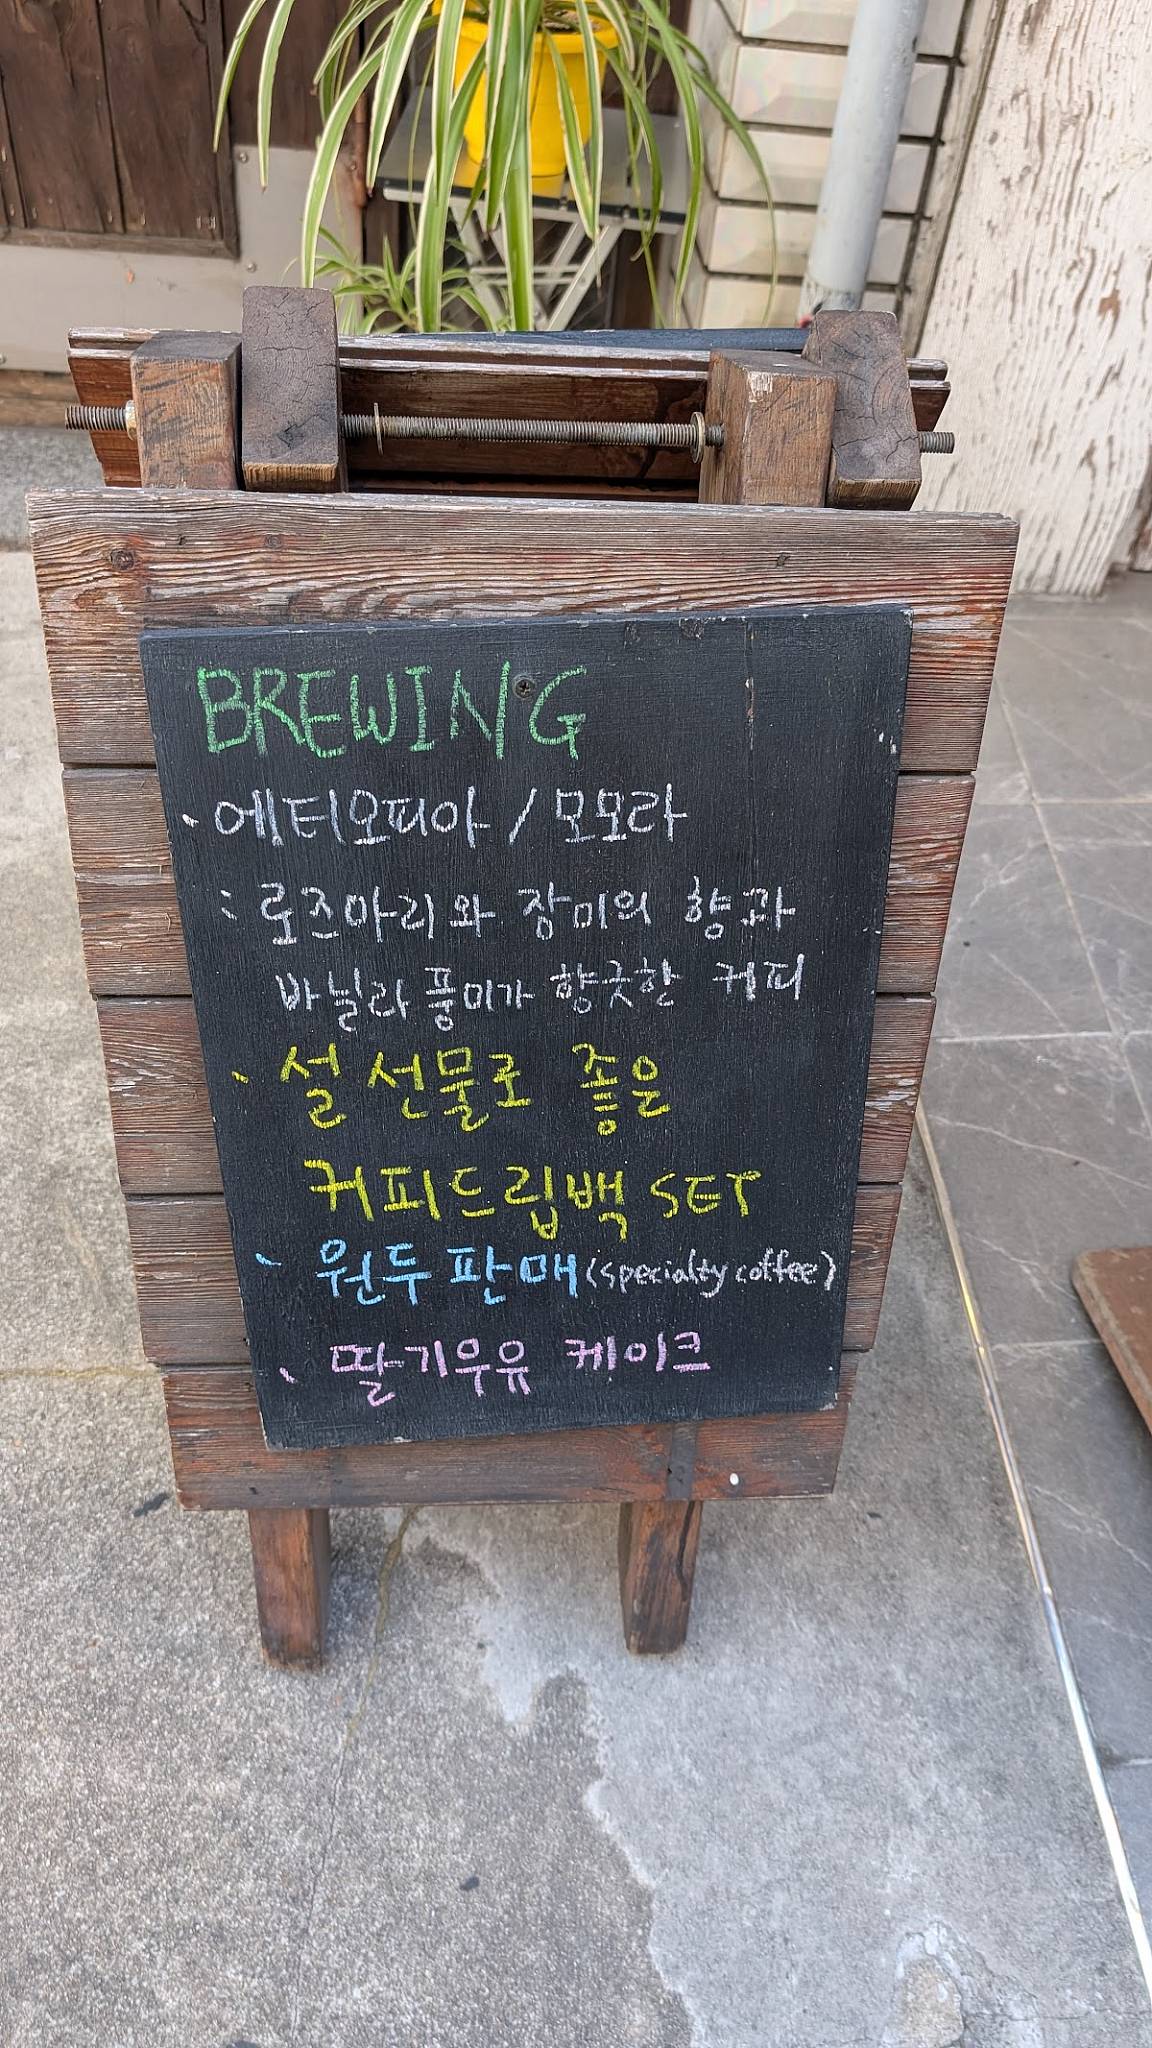 BREWING
· 에티오피아 / 모모라
: 로즈마리와 장미의 향과
바닐라 풍미가 향긋한 커피
· 설 선물로 좋은
커피드립백 SET
· 원두 판매 (specialty coffee)
· 딸기우유 케이크